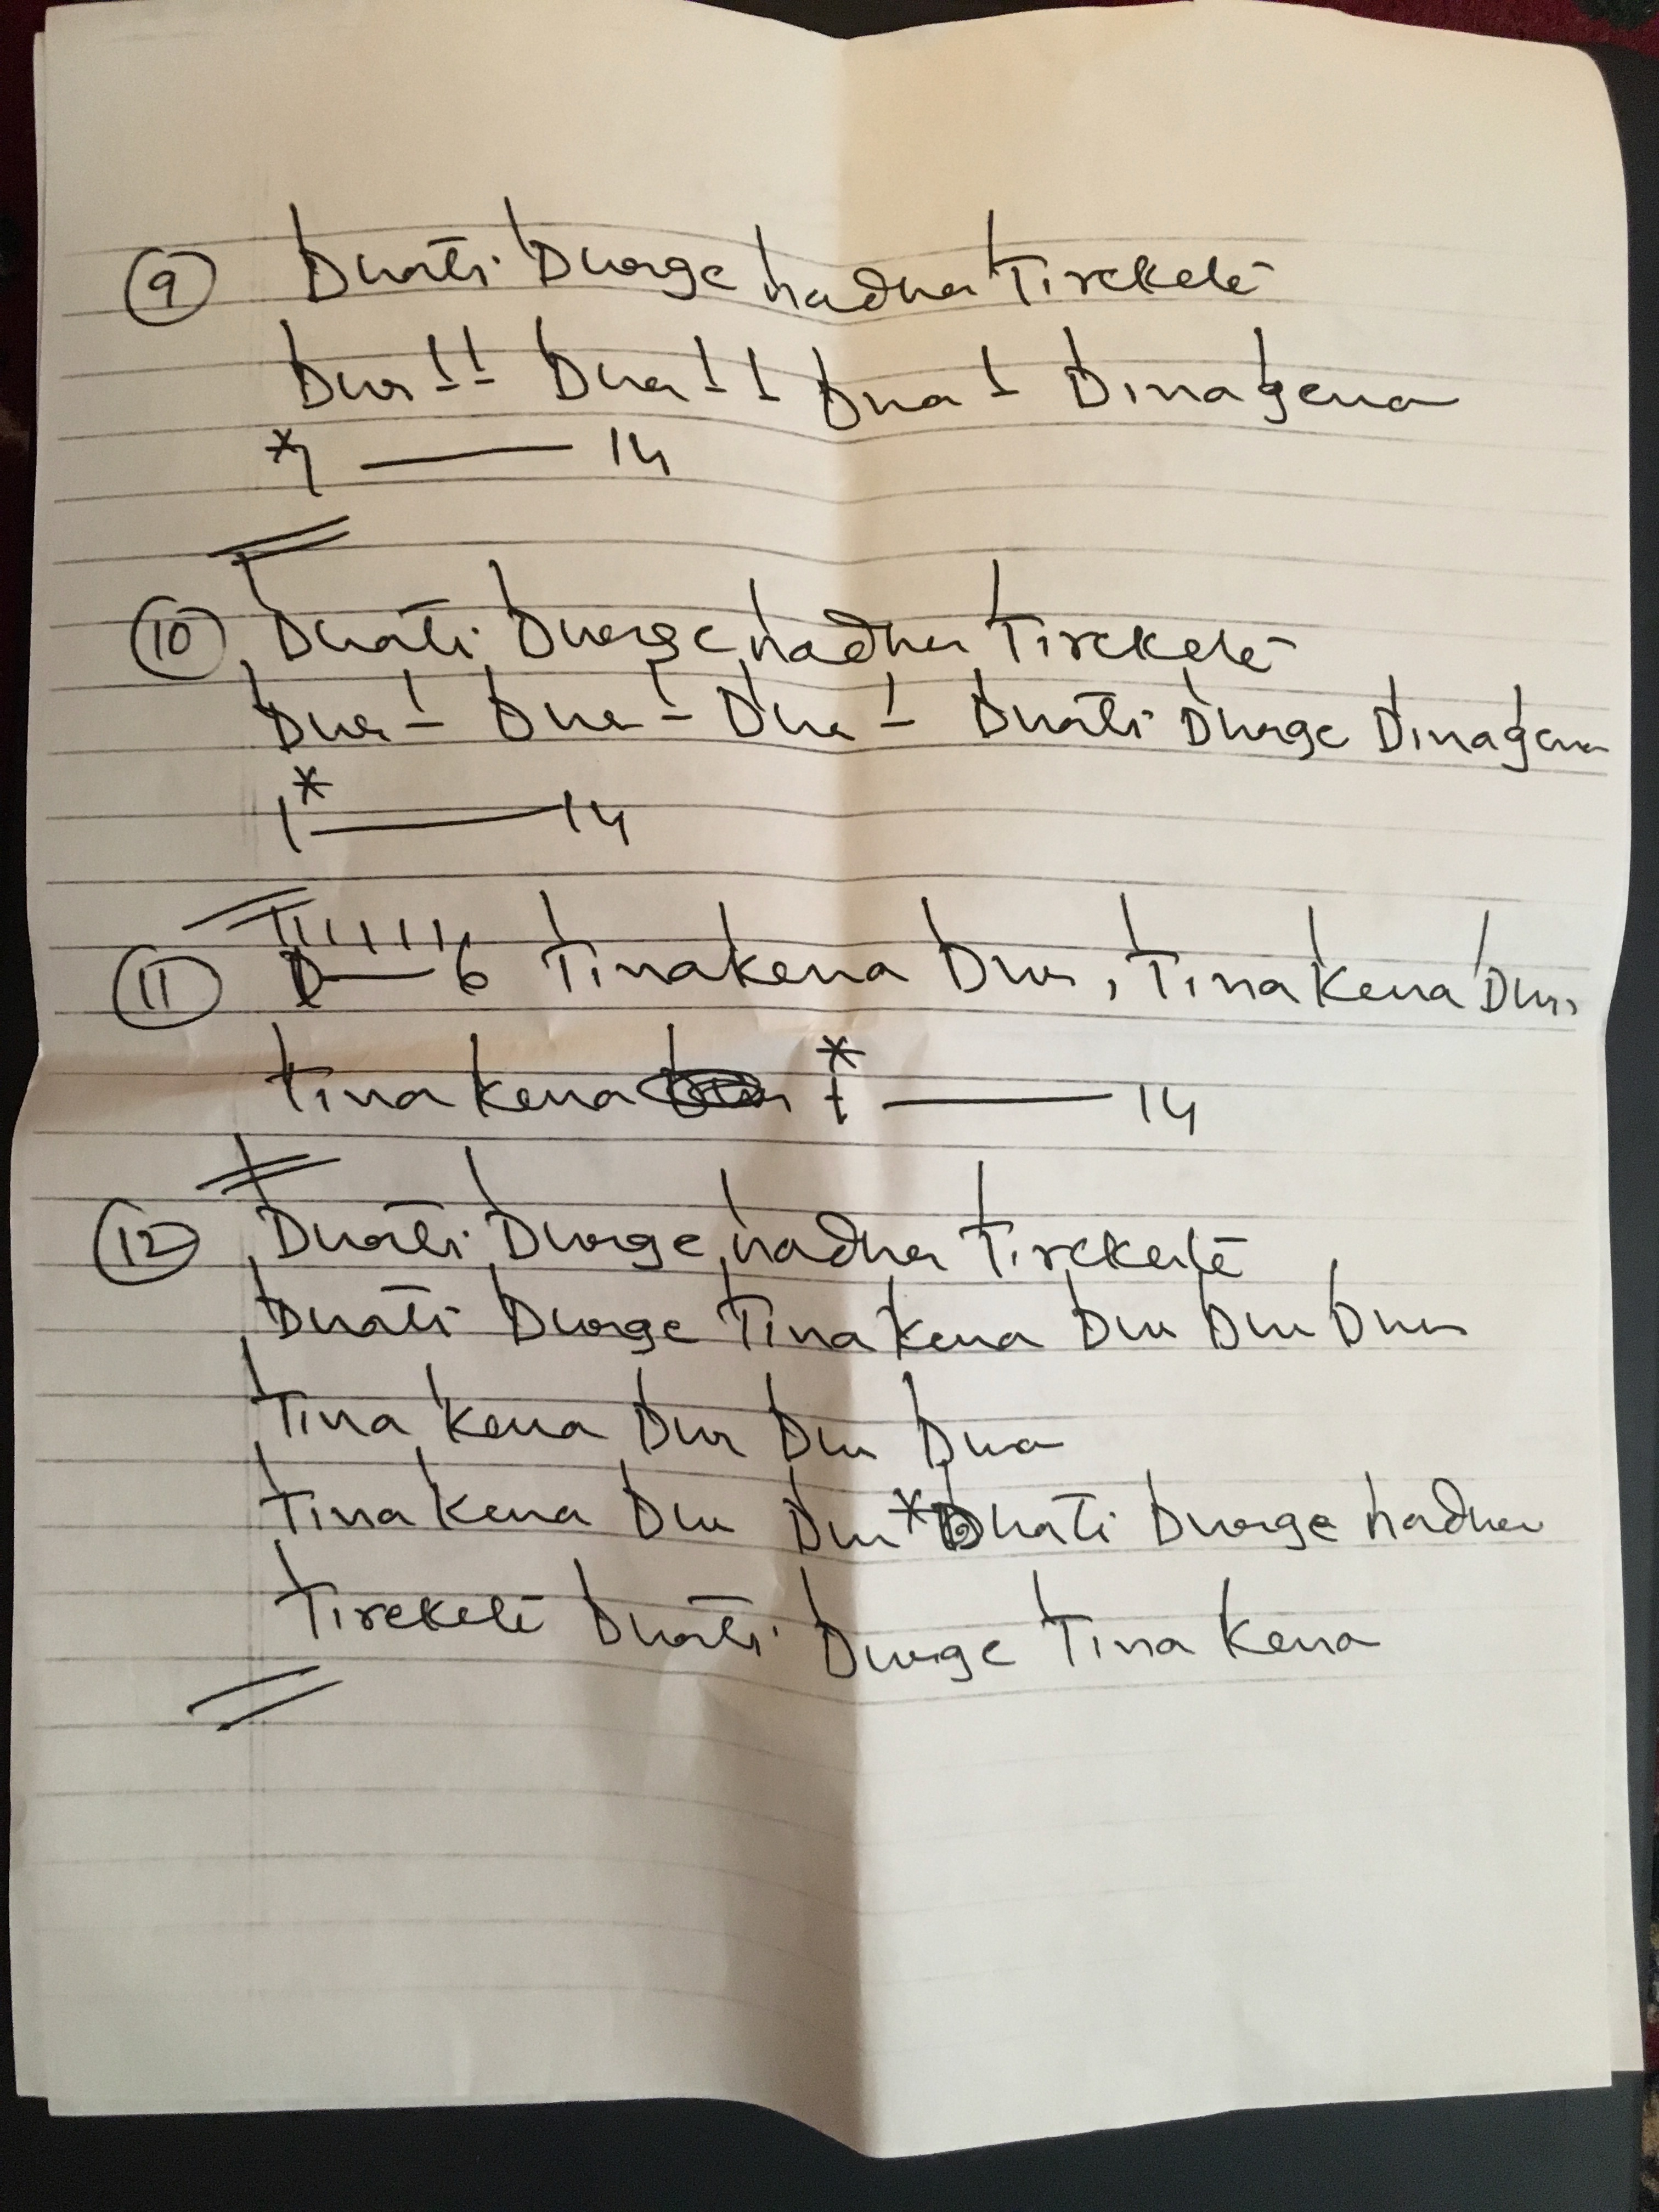 9 Dhati Dhage nadha Tirekete
Dha - - Dha - - Dha - Dinagena
*1 — 14
10 Dhati Dhage nadha Tirekete
Dha - Dha - Dha - Dhati Dhage Dinagena
1* — 14
11 — 6 Tinakena Dha, Tinakena Dha,
Tinakena * 1 — 14
12 Dhati Dhage nadha Tirekete
Dhati Dhage Tinakena Dha Dha Dha
Tina kena Dha Dha Dha
Tina kena Dha Dha * Dhati Dhage nadha
Tirekete Dhati Dhage Tina kena